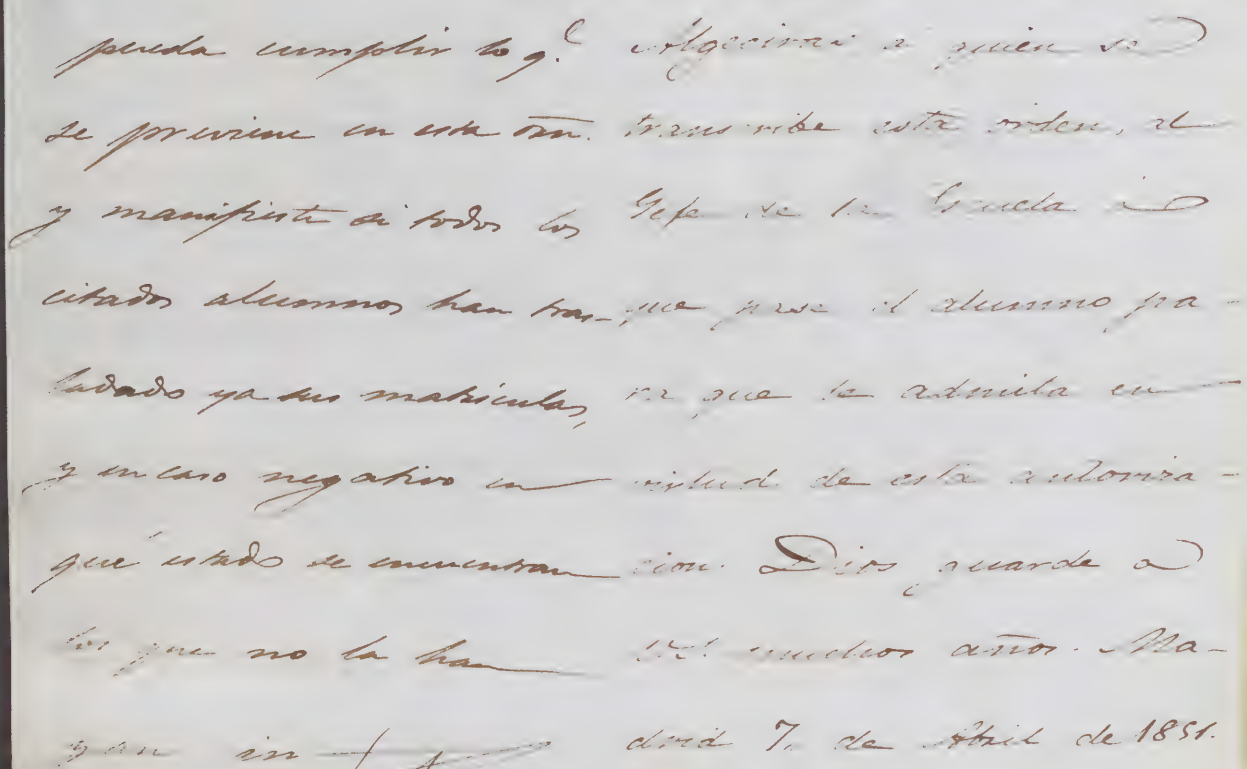 pueda cumplir lo q.e
se previene en esta orn.
y manifieste si todos los
citados alumnos han tras-
ladado ya sus matriculas,
y en caso negativo en
qué estado se encuentran
los que no la han
Algeciras a quien se
transcribe esta orden, al
Gefe de la Escuela á
que pase el alumno pa-
ra que le admita en
virtud de esta autoriza-
cion. Dios guarde a
muchos años. Ma-
drid 7. de Abril de 1851.